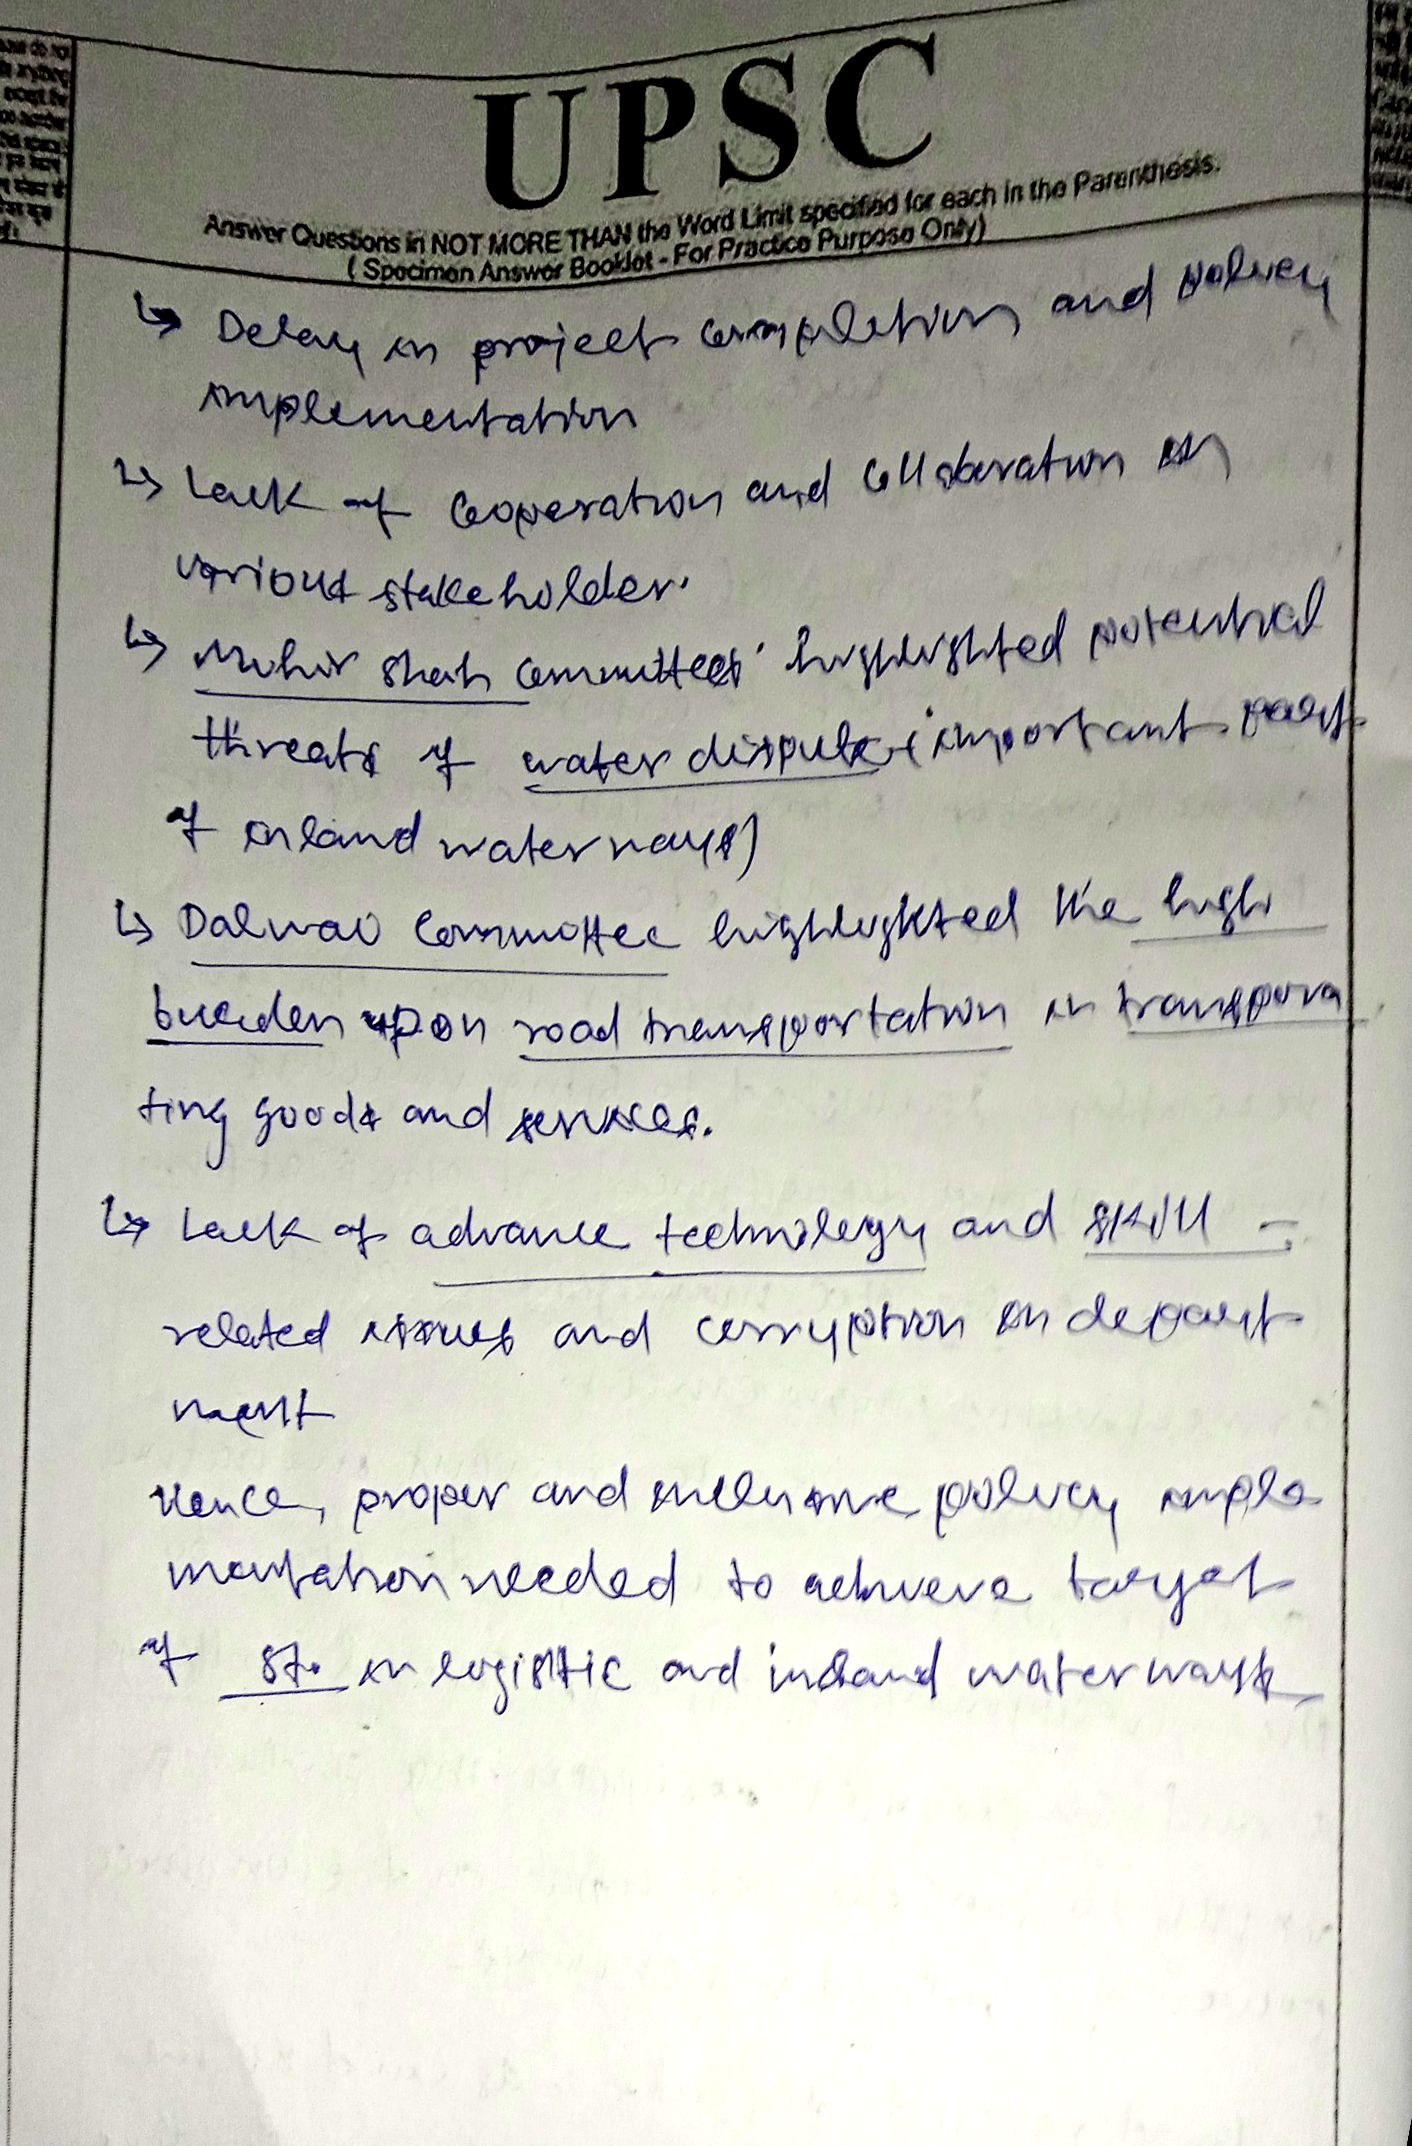 UPSC
Answer Questions in NOT MORE THAN the Word Limit specified for each in the Parenthesis.
( Specimen Answer Booklet - For Practice Purpose Only)
↳ Delay in project completion and policy
implementation
↳ Lack of cooperation and collaboration in
various stakeholder.
↳ Mihir Shah committee highlighted potential
threats of water dispute (important part
of inland waterways)
↳ Dalwai Committee highlighted the high
burden upon road transportation in transpora
ting goods and services.
↳ Lack of advance technology and skill -
related issues and corruption in depart
ment
Hence, proper and inclusive policy imple
mentation needed to achieve target
of in logistic and inland waterways